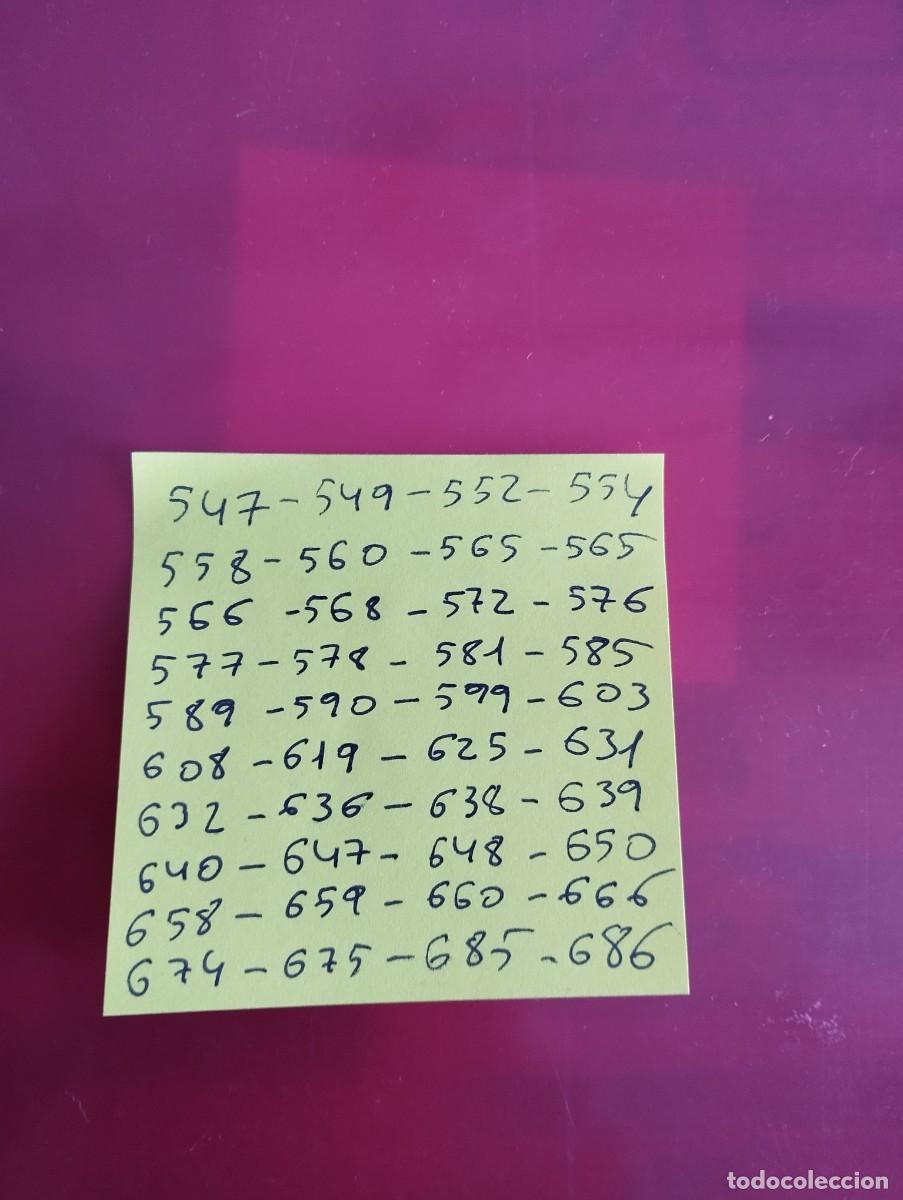 547-549-552-554
558-560-565-565
566-568-572-576
577-578-581-585
589-590-599-603
608-619-625-631
632-636-638-639
640-647-648-650
658-659-660-666
674-675-685-686
todocoleccion